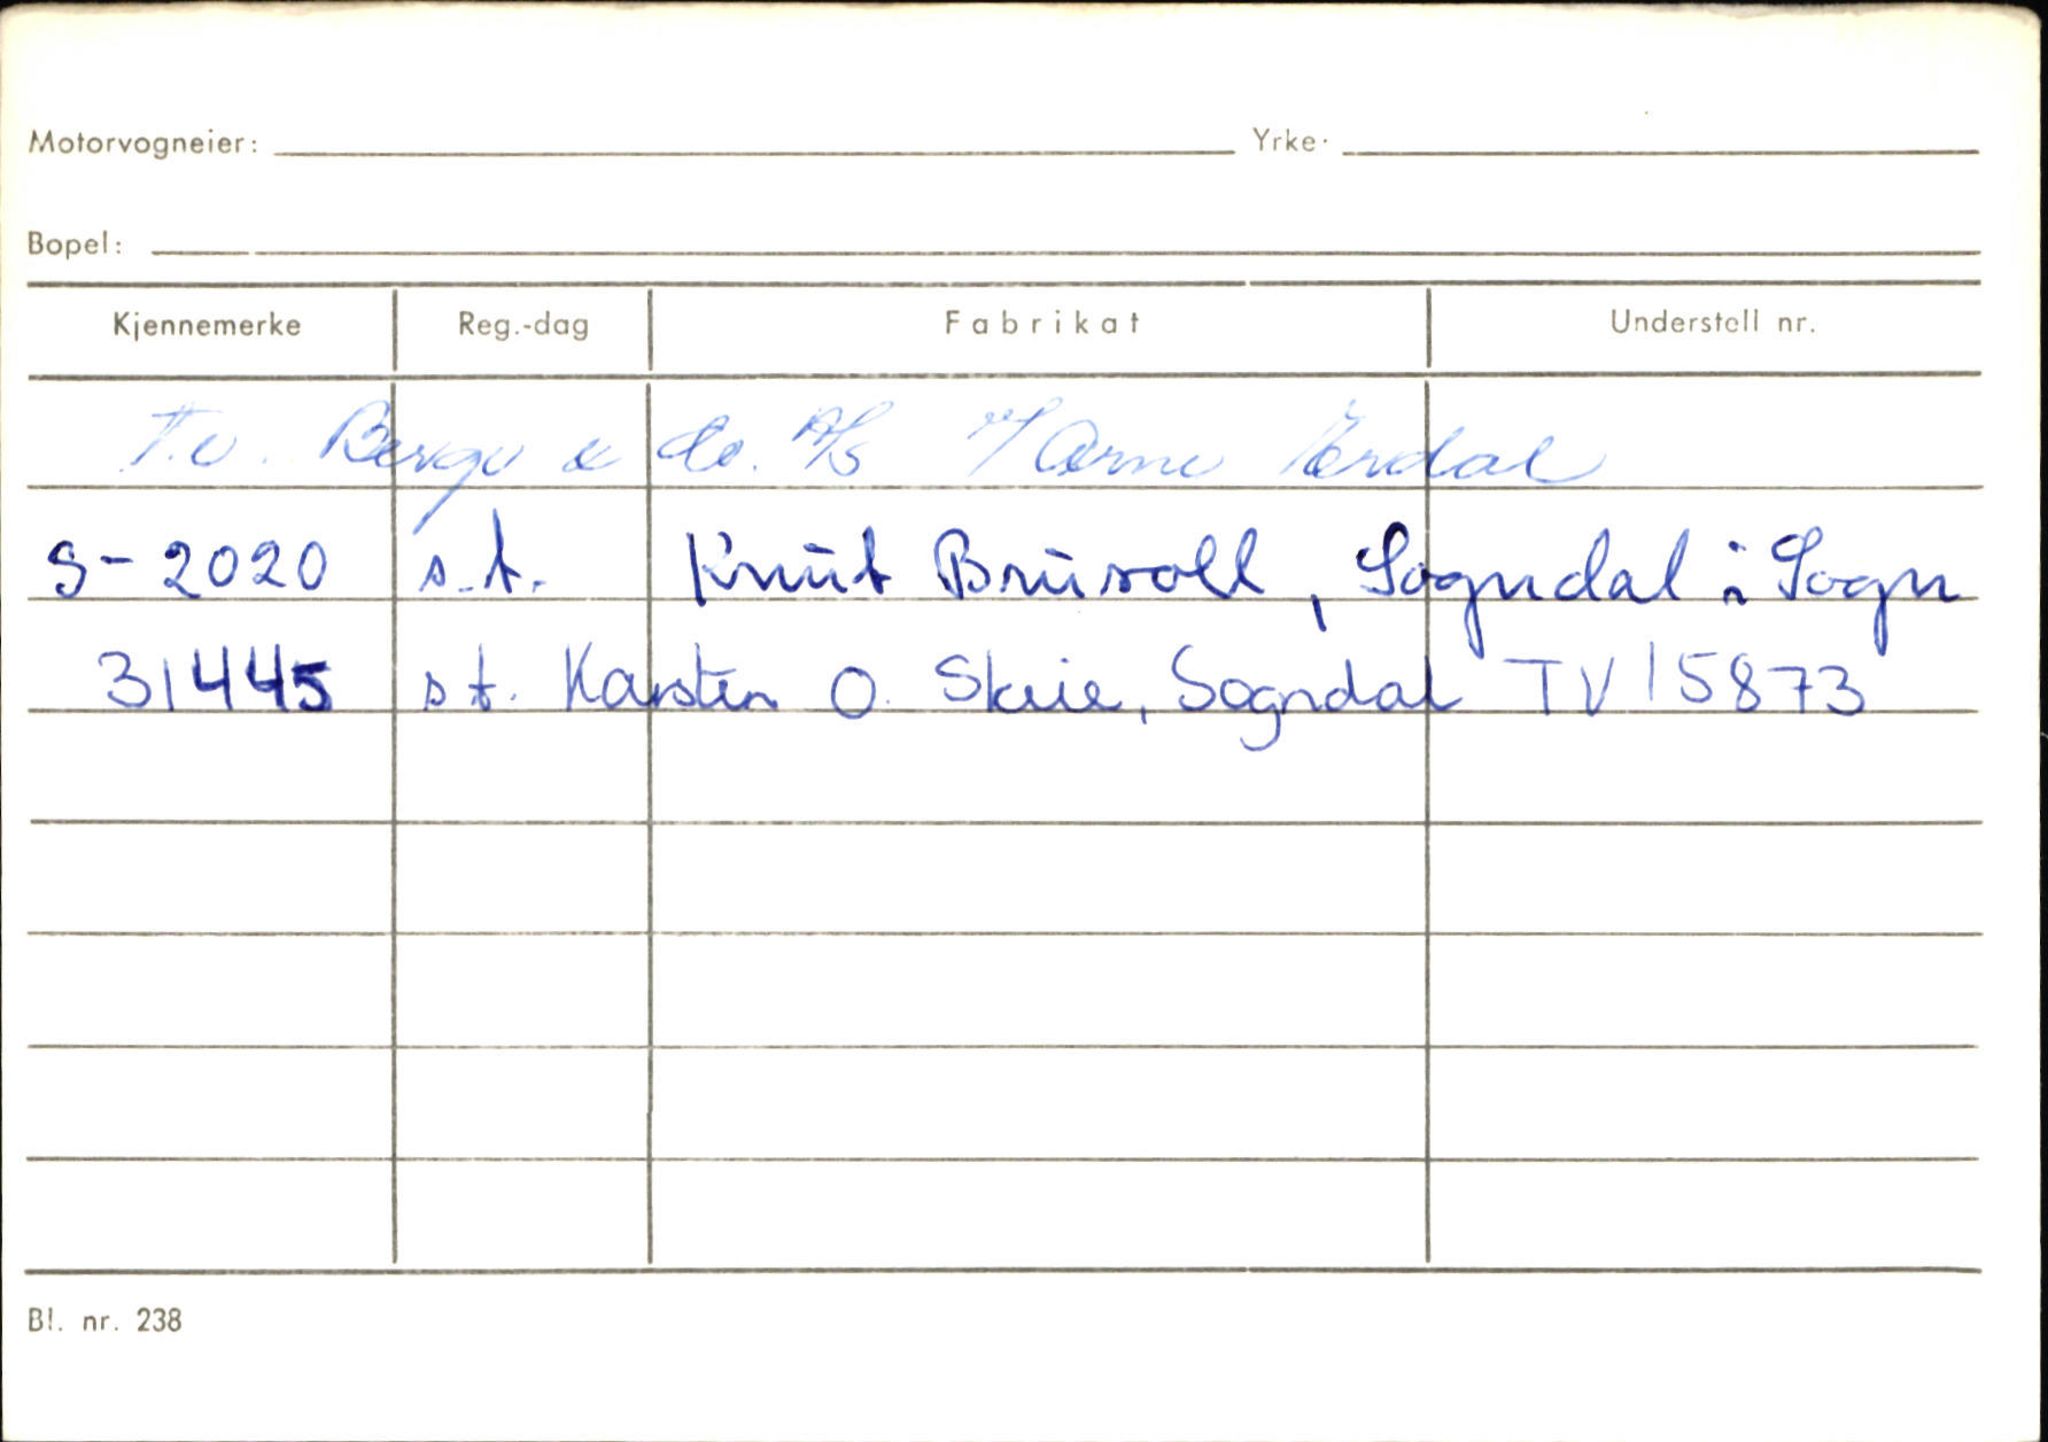 Motorvogneier: Yrke.
Bopel:
Kjennemerke Reg.-dag Fabrikat Understell nr.
& Co. A/S v/Arne
S-2020 s.t. Knut Brusoll, Sogndal i Sogn
31445 s.t. Karsten O. Skrie, Sogndal TV 15873
Bl. nr. 238